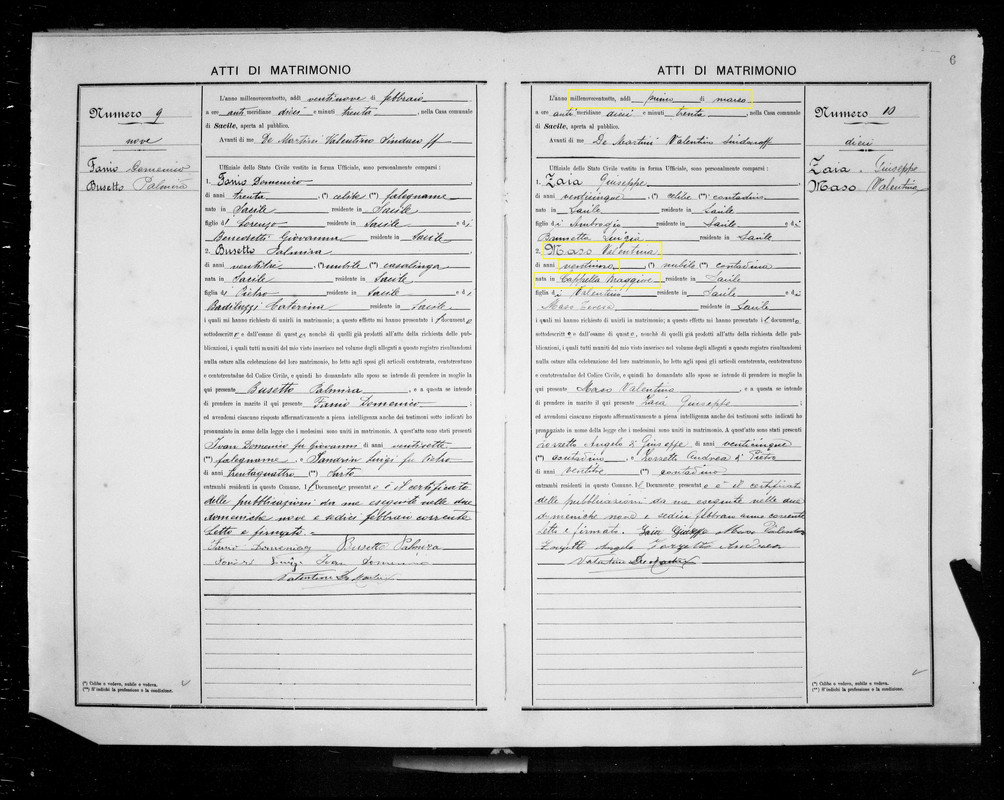 6
ATTI DI MATRIMONIO
Numero 9
nove
Fanio Domenico
Busetto Palmira
L'anno millenovecentootto, addì ventinove di febbraio
a ore anti meridiane dieci e minuti trenta, nella Casa comunale
di Sacile, aperta al pubblico.
Avanti di me De Martini Valentino Sindaco ff
Uffiziale dello Stato Civile vestito in forma Ufficiale, sono personalmente comparsi:
1. Fanio Domenico
di anni trenta, (*) celibe (**) falegname
nato in Sacile residente in Sacile
figlio di Lorenzo residente in Sacile e di
Benedetti Giovanna residente in Sacile
2. Busetto Palmira
di anni ventitre (*) nubile (**) casalinga
nata in Sacile residente in Sacile
figlia di Pietro residente in Sacile e di
Caterina residente in Sacile
i quali mi hanno richiesto di unirli in matrimonio; a questo effetto mi hanno presentato il documento
sottodescritto e dall'esame di questo nonchè di quelli già prodotti all'atto della richiesta delle pub-
blicazioni, i quali tutti muniti del mio visto inserisco nel volume degli allegati a questo registro risultandomi
nulla ostare alla celebrazione del loro matrimonio, ho letto agli sposi gli articoli centotrenta, centotrentuno
e centotrentadue del Codice Civile, e quindi ho domandato allo sposo se intende di prendere in moglie la
qui presente Busetto Palmira, e a questa se intende
di prendere in marito il qui presente Fanio Domenico;
ed avendomi ciascuno risposto affermativamente a piena intelligenza anche dei testimoni sotto indicati ho
pronunziato in nome della legge che i medesimi sono uniti in matrimonio. A quest'atto sono stati presenti
Ivan Domenico fu Giovanni di anni ventisette
(**) falegname, e Sandrin Luigi fu Pietro
di anni trentaquattro (**) sarto
entrambi residenti in questo Comune. Il Documento presentato è il certificato
delle pubblicazioni da me eseguite nelle due
domeniche nove e sedici febbraio corrente
Letto e firmato.
Fanio Domenico Busetto Palmira
Luigi Ivan Domenico
Valentino De Martini
(*) Celibe o vedovo, nubile o vedova.
(**) S'indichi la professione o la condizione.
ATTI DI MATRIMONIO
L'anno millenovecentootto, addì primo di marzo
a ore anti meridiane dieci e minuti trenta, nella Casa comunale
di Sacile, aperta al pubblico.
Avanti di me De Martini Valentino Sindaco ff
Uffiziale dello Stato Civile vestito in forma Ufficiale, sono personalmente comparsi:
1. Zaia Giuseppe
di anni venticinque, (*) celibe (**) contadino
nato in Sacile residente in Sacile
figlio di Ambrogio residente in Sacile e di
Brunetta Luigia residente in Sacile
2. Maso Valentina
di anni ventinove (*) nubile (**) contadina
nata in Cappella Maggiore residente in Sacile
figlia di Valentino residente in Sacile e di
Maso Teresa residente in Sacile
i quali mi hanno richiesto di unirli in matrimonio; a questo effetto mi hanno presentato il documento
sottodescritto e dall'esame di questo, nonchè di quelli già prodotti all'atto della richiesta delle pub-
blicazioni, i quali tutti muniti del mio visto inserisco nel volume degli allegati a questo registro risultandomi
nulla ostare alla celebrazione del loro matrimonio, ho letto agli sposi gli articoli centotrenta, centotrentuno
e centotrentadue del Codice Civile, e quindi ho domandato allo sposo se intende di prendere in moglie la
qui presente Maso Valentina, e a questa se intende
di prendere in marito il qui presente Zaia Giuseppe;
ed avendomi ciascuno risposto affermativamente a piena intelligenza anche dei testimoni sotto indicati ho
pronunziato in nome della legge che i medesimi sono uniti in matrimonio. A quest'atto sono stati presenti
Zorzetto Angelo di Giuseppe di anni venticinque
(**) contadino, e Zorzetto Andrea di Pietro
di anni ventitre (**) contadino
entrambi residenti in questo Comune. Il Documento presentato è il certificato
delle pubblicazioni da me eseguite nelle due
domeniche nove e sedici febbraio anno corrente
Letto e firmato. Zaia Giuseppe Maso Valentina
Zorzetto Angelo Zorzetto Andrea
Valentino De Martini
Numero 10
dieci
Zaia Giuseppe
Maso Valentina
(*) Celibe o vedovo, nubile o vedova.
(**) S'indichi la professione o la condizione.